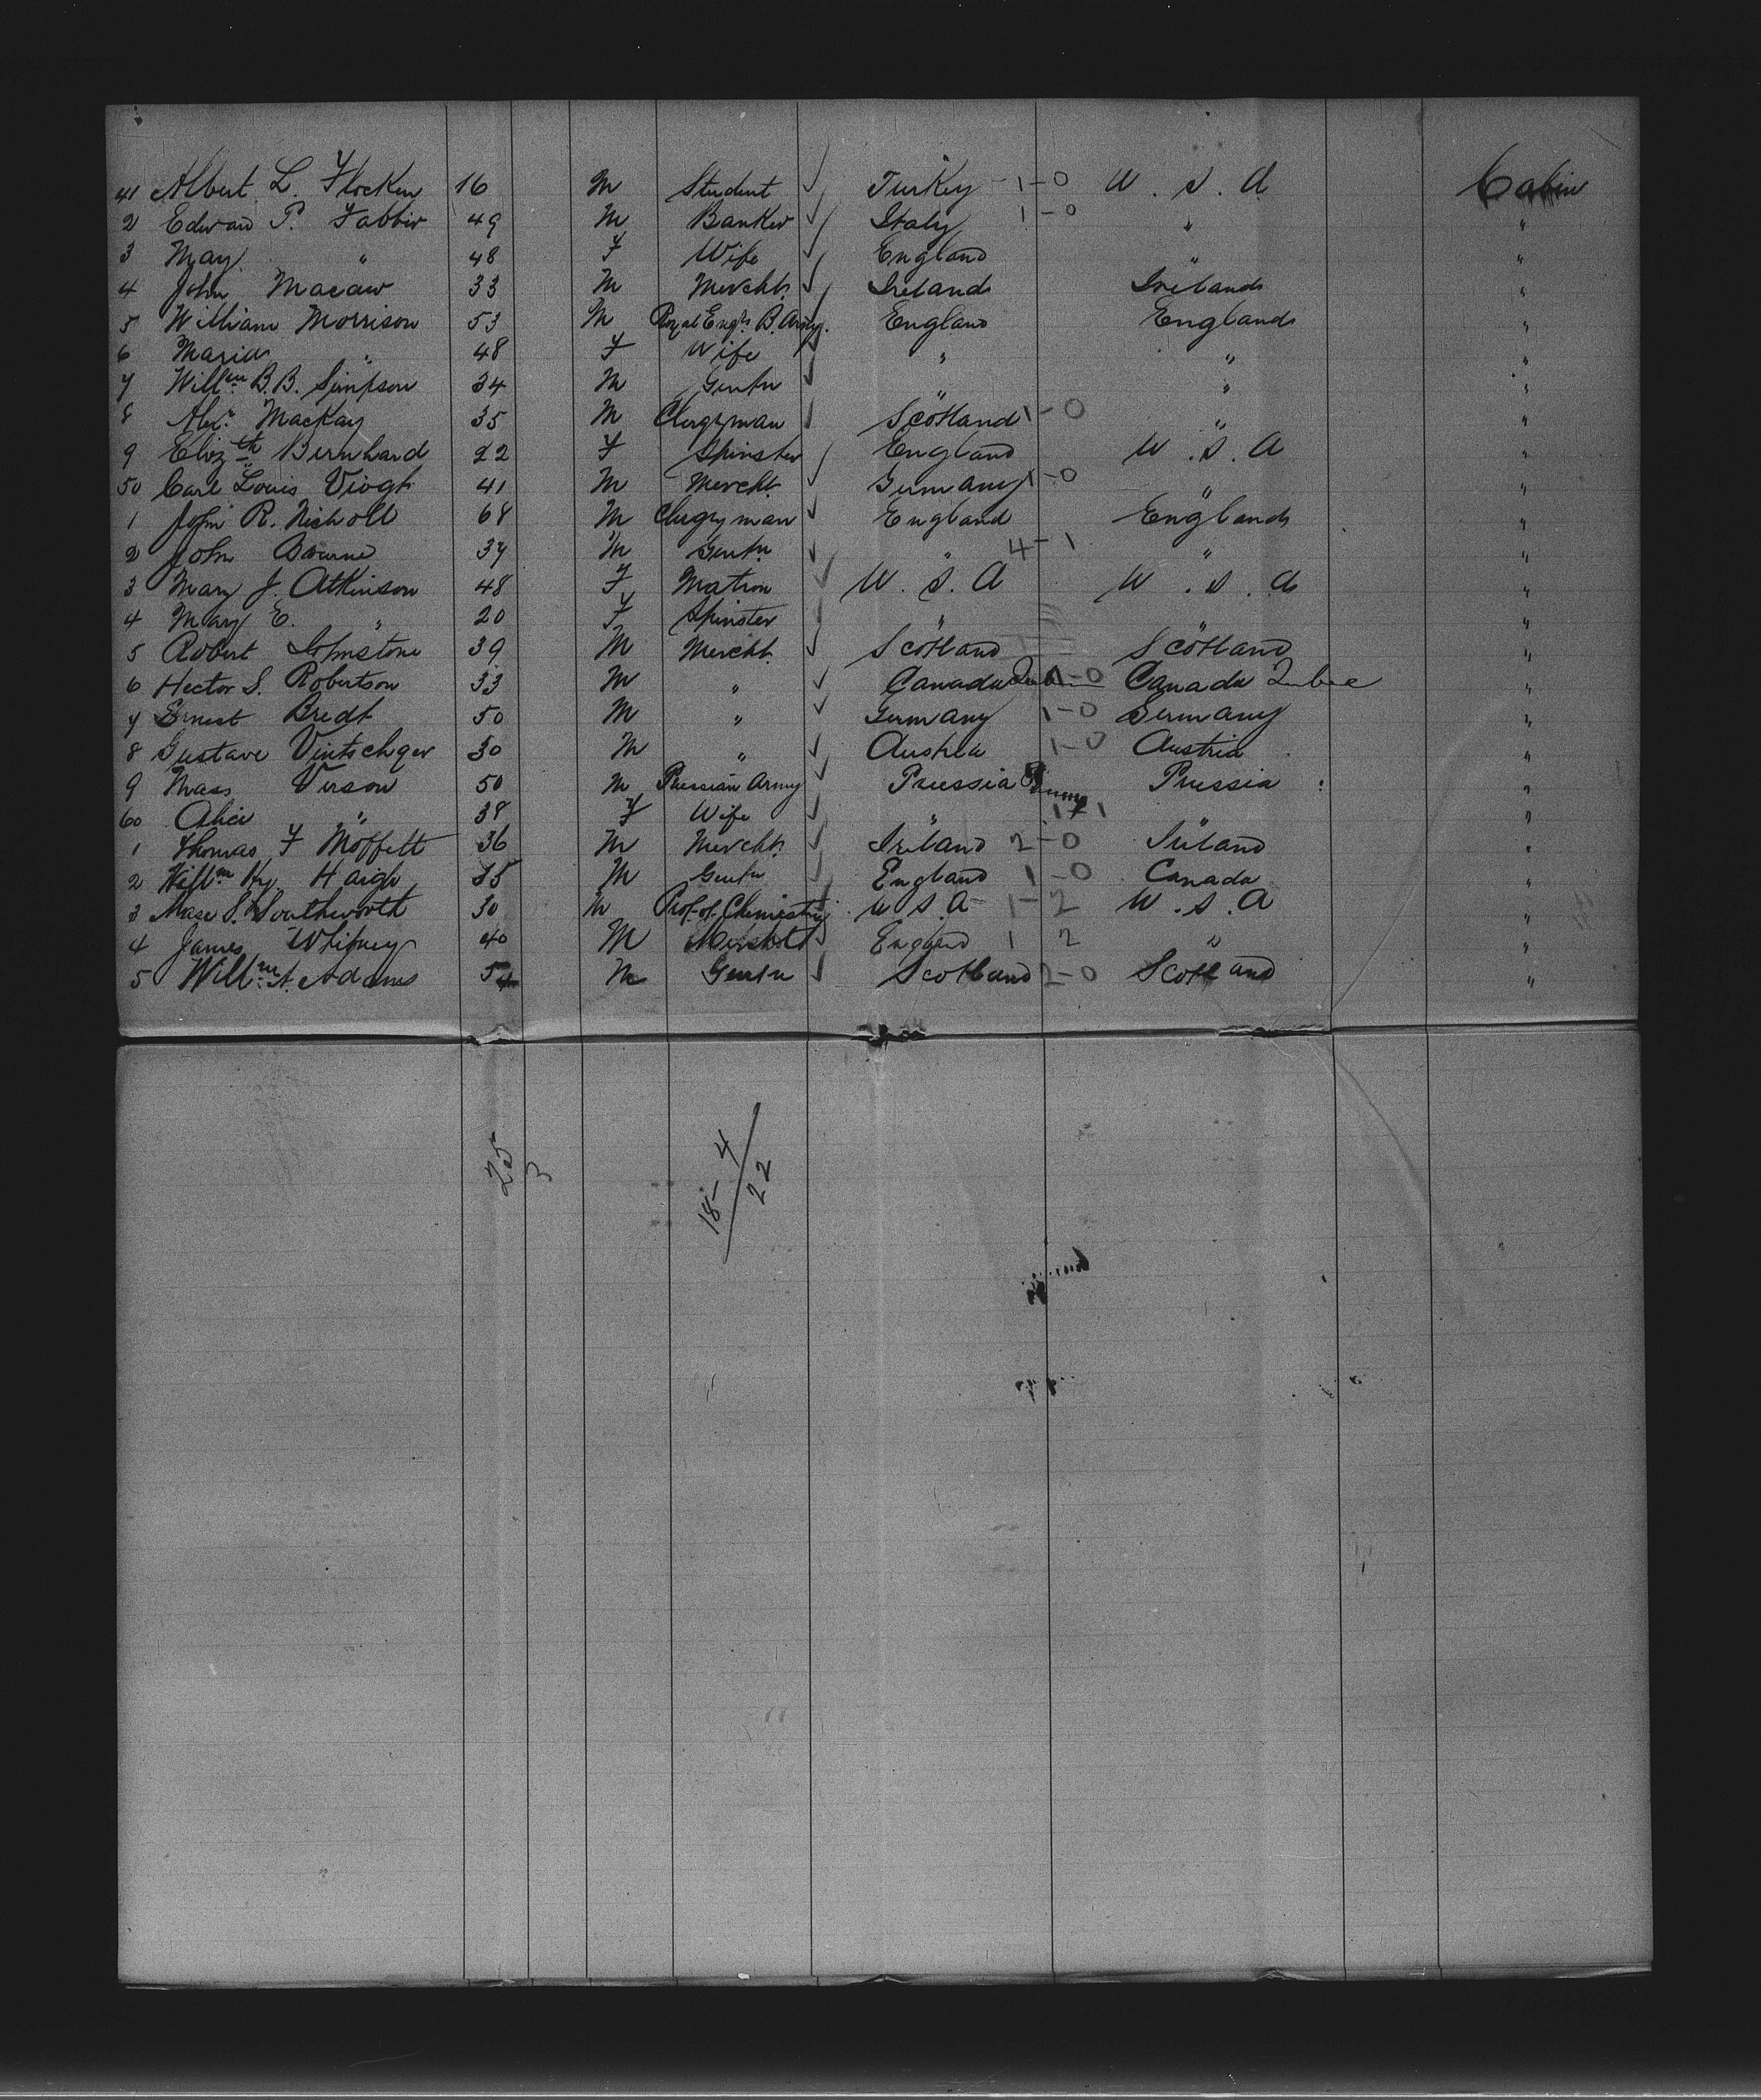 41 Albert L. Flocken 16 M Student ✓ Turkey 1-0 U.S.A Cabin
2 Edward P. Fabbri 49 M Banker ✓ Italy 1-0 " "
3 May " 48 F Wife ✓ England "
4 John Macaw 33 M Mercht. ✓ Ireland Ireland "
5 William Morrison 53 M Royal Engrs B. Army. England England "
6 Maria " 48 F Wife ✓ " " "
7 Willm B.B. Simpson 34 M Gentn ✓ " "
8 Alexr. Mackay 35 M Clergyman ✓ Scotland 1-0 " "
9 Elizth Bernhard 22 F Spinster ✓ England U.S.A "
50 Carl Louis Viogt 41 M Mercht. ✓ Germany 1-0 " "
1 John R. Nicholl 68 M Clergyman ✓ England England "
2 John Bourne 37 M Gentn ✓ " 4-1 " "
3 Mary J. Atkinson 48 F Matron ✓ U.S.A U.S.A "
4 Mary E. " 20 F Spinster ✓ " "
5 Robert Johnstone 39 M Mercht. ✓ Scotland Scotland "
6 Hector S. Robertson 33 M " ✓ Canada 1-0 Canada Quebec "
7 Ernest Bredt 50 M " ✓ Germany 1-0 Germany "
8 Gustave Vintschger 30 M " ✓ Austria 1-0 Austria "
9 Mass Verson 50 M Prussian Army ✓ Prussia Prussia "
60 Alice " 38 F Wife ✓ 1-1 "
1 Thomas F Moffett 36 M Mercht. ✓ Ireland 2-0 Ireland "
2 Willm Hy. Haigh 35 M Gentn ✓ England 1-0 Canada "
3 Mase S. Southworth 30 M Prof. of Chemistry U.S.A 1-2 U.S.A "
4 James Whitney 40 M Mercht ✓ England 1 2 " "
5 Willm A. Adams 54 M Gentn ✓ Scotland 2-0 Scotland "
25
3
18-4
22